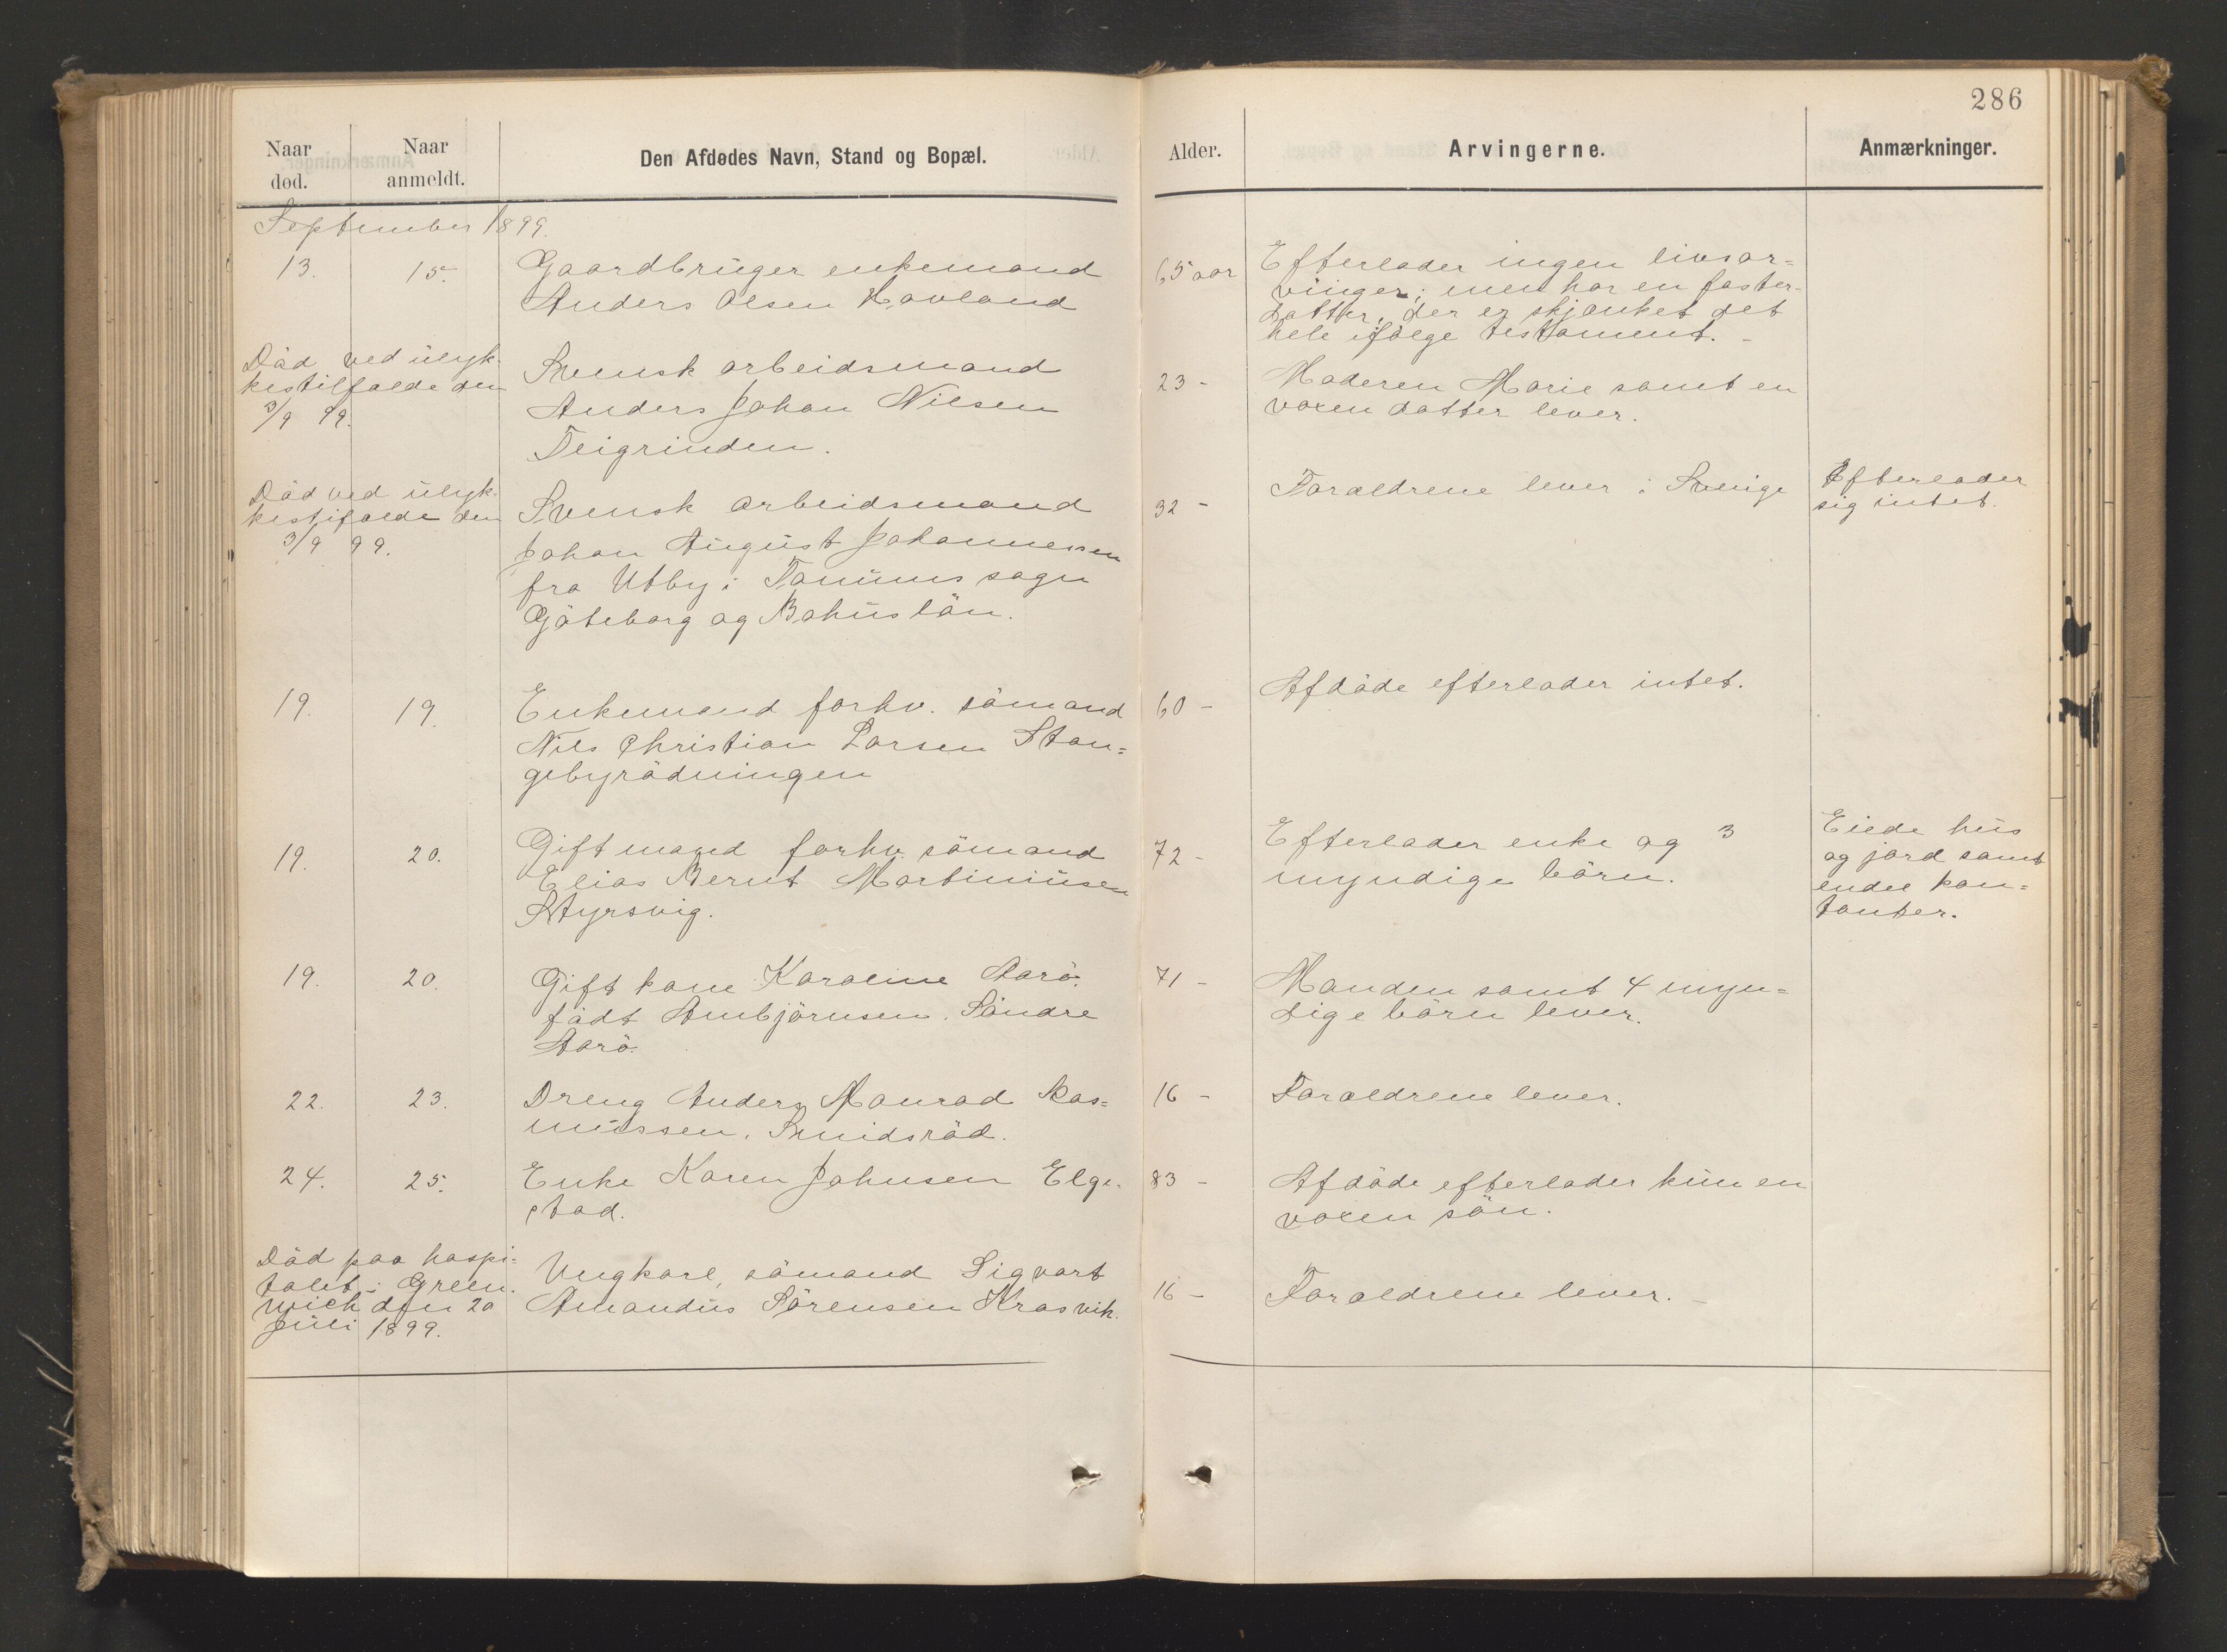 286
Naar død.
Naar anmeldt.
Den Afdødes Navn, Stand og Bopæl.
Alder.
Arvingerne.
Anmærkninger.
September 1899.
13.
15.
Gaardbruger enkemand
Anders Olsen Havland
65 aar
Efterlader ingen livsar=
vinger; men har en foster-
datter, der er skjænket det
hele ifølge testament. -
Död ved ulyk-
kestilfælde den
3/9 99.
Svensk arbeidsmand
Anders Johan Nilsen
Teigrinden.
23 -
Moderen Marie samt en
voxen datter lever.
Död ved ulyk-
kestifælde den
3/9 99.
Svensk arbeidsmand
Johan August Johannessen
fra Utby i Tanums sogn
Göteborg og Bohus län.
32 -
Forældrene lever i Sverige
Efterlader
sig intet.
19.
19.
Enkemand forhv. sömand
Nils Christian Larsen Stan=
gebyrödningen
60 -
Afdöde efterlader intet.
19.
20.
Gift mand forhv. sömand
Elias Bernt Martiniusen
Styrsvig.
72 -
Efterlader enke og 3
myndige börn.
Eiede hus
og jord samt
endel kon=
tanter.
19.
20.
Gift kone Karoline Aarö.
födt Ambjörnsen. Söndre
Aarö.
71 -
Manden samt 4 myn=
dige börn lever.
22.
23.
Dreng Anders Monrad Ras=
mussen. Smidsröd.
16 -
Forældrene lever.
24.
25.
Enke Karen Johnsen Elge-
stad.
83 -
Afdöde efterlader kun en
voxen sön.
Död paa hospi=
talet i Green-
wich den 20
Juli 1899.
Ungkarl, sömand Sigvart
Amandus Sörensen Krasvik.
16 -
Forældrene lever. -